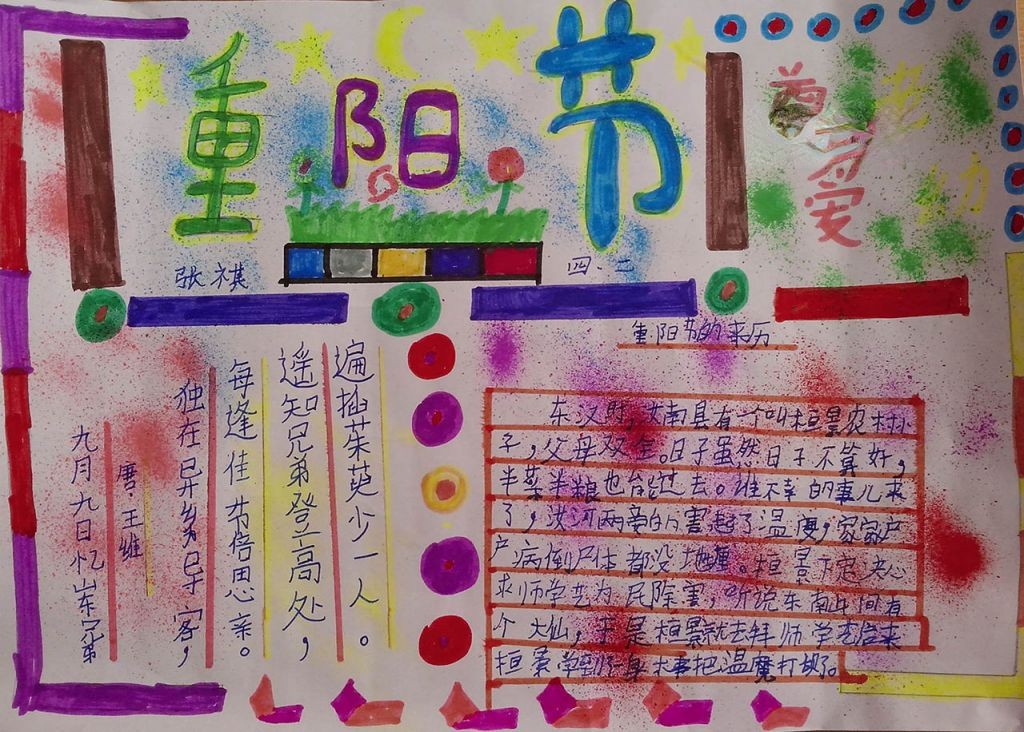 重阳节
尊老爱幼
张祺
四.二
九月九日忆山东兄弟
唐.王维
独在异乡为异客，
每逢佳节倍思亲。
遥知兄弟登高处，
遍插茱萸少一人。
重阳节的来历
东汉时，汝南县有一个叫桓景农村小
子，父母双全。日子虽然日子不算好，
半菜半粮也能过去。谁不幸的事儿来
了，汝河两旁的害起了温疫，家家户
户病倒尸体都没地埋。桓景下定决心
求师学艺为民除害，听说东南间有
个大仙，于是桓景就去拜师学艺后来
桓景学到身大事把温魔打败了。